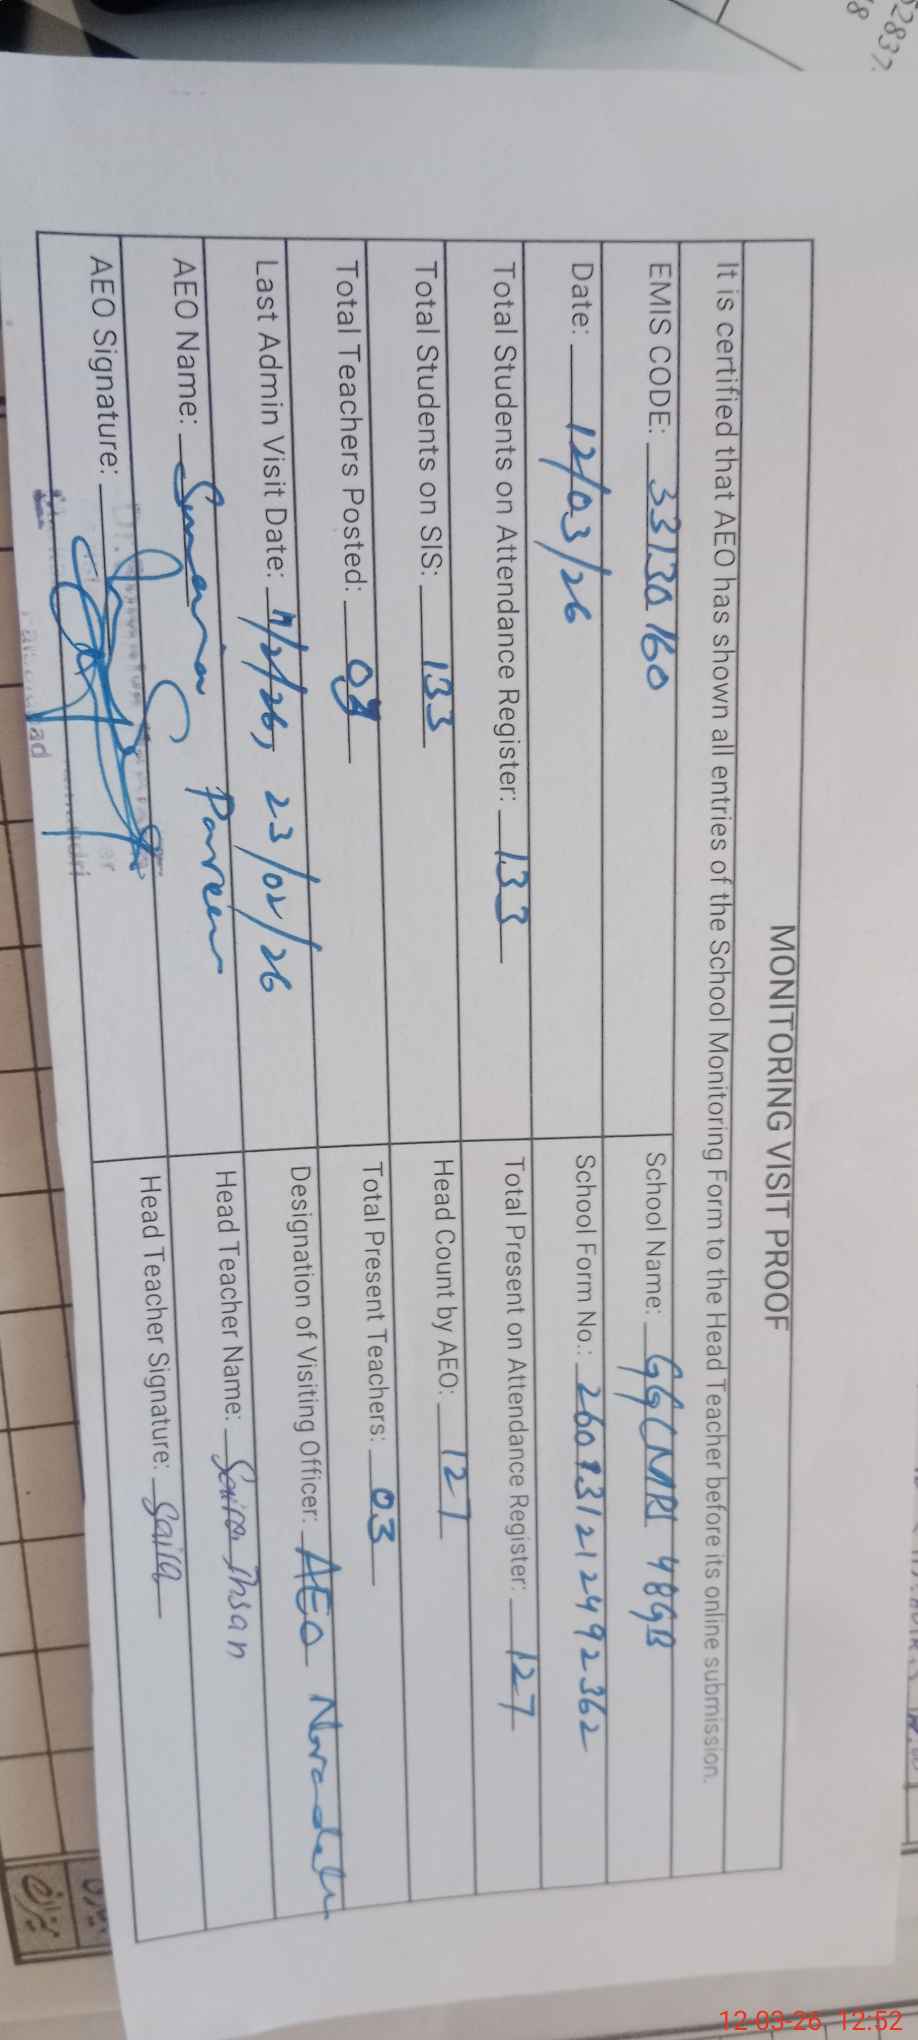 MONITORING VISIT PROOF
It is certified that AEO has shown all entries of the School Monitoring Form to the Head Teacher before its online submission.
EMIS CODE: 33130160 School Name: GGCMPS 48GB
Date: 12/03/26 School Form No.: 260331212492362
Total Students on Attendance Register: 133 Total Present on Attendance Register: 127
Total Students on SIS: 133 Head Count by AEO: 127
Total Teachers Posted: Total Present Teachers: 03
Last Admin Visit Date: /2/26, 23/02/26 Designation of Visiting Officer: AEO
AEO Name: Parveen Head Teacher Name: Saira Ihsan
AEO Signature: Head Teacher Signature: Saira
12-03-26, 12:52